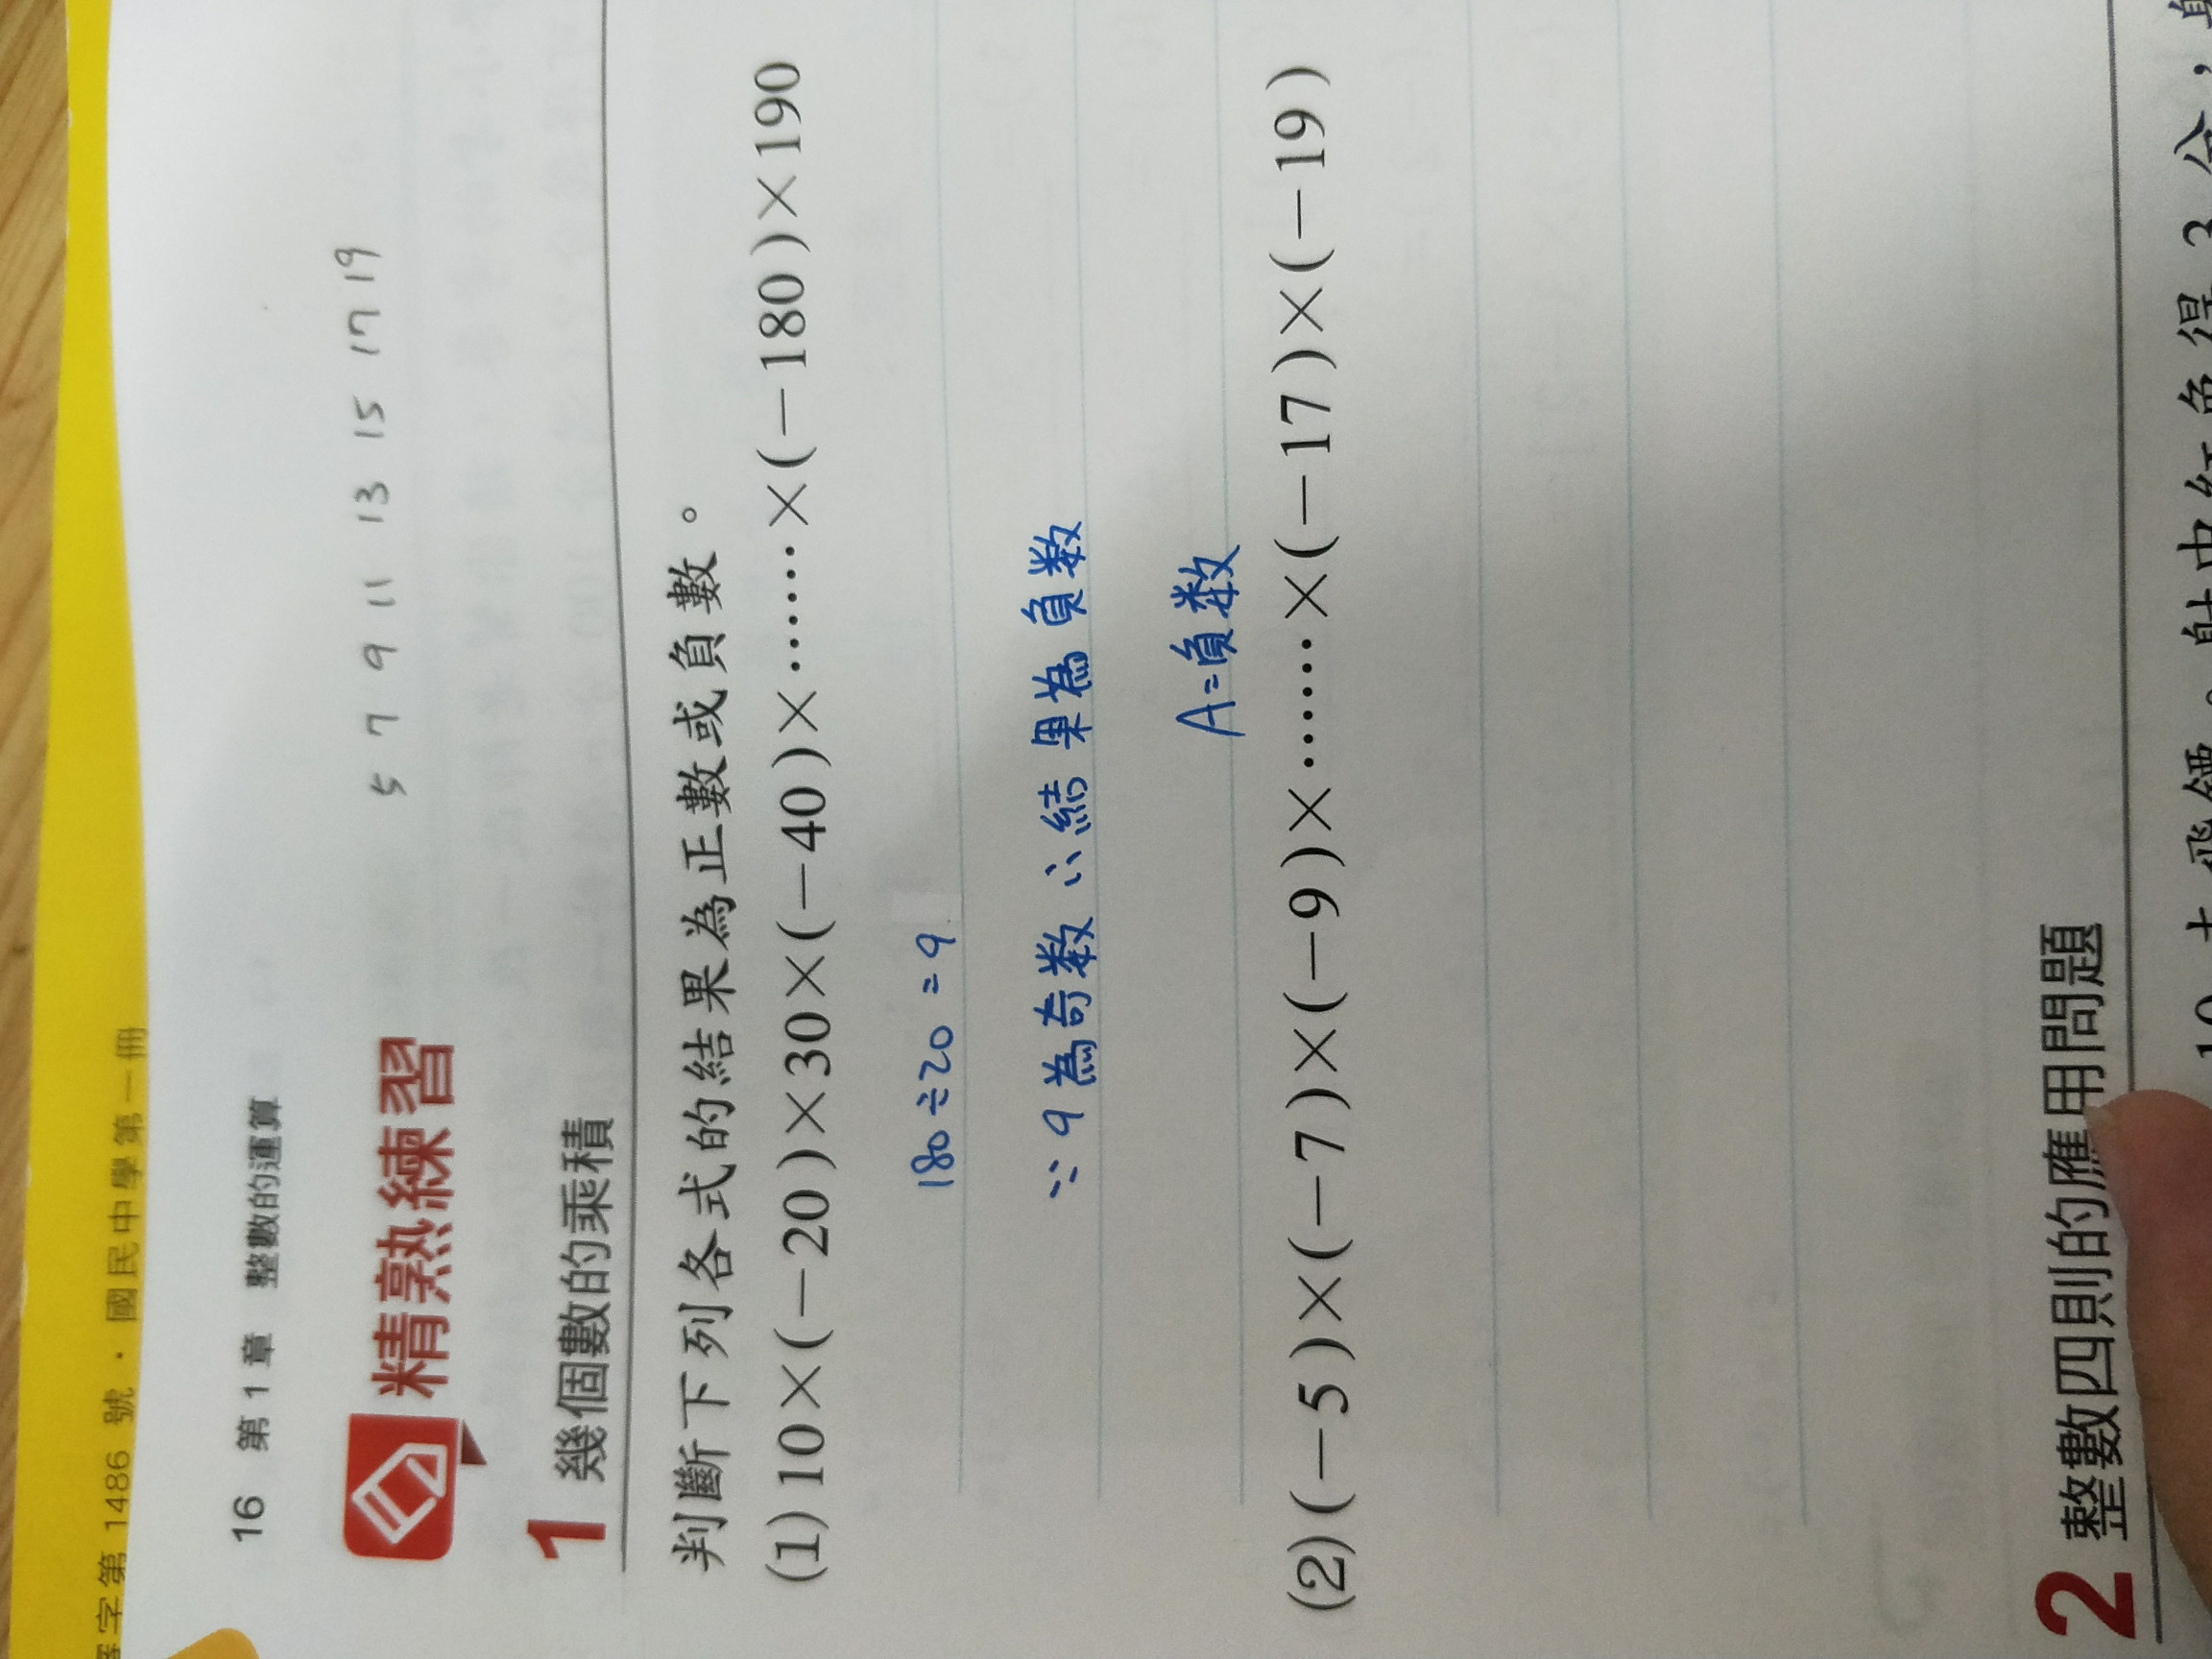 審字第 1486 號．國民中學第一冊
16 第 1 章 整數的運算
5 7 9 11 13 15 17 19
精熟練習
1 幾個數的乘積
判斷下列各式的結果為正數或負數。
(1) 10×(-20)×30×(-40)×……×(-180)×190
180÷20=9
∵9為奇数 ∴結果為負数
A=負数
(2) (-5)×(-7)×(-9)×……×(-17)×(-19)
2 整數四則的應用問題